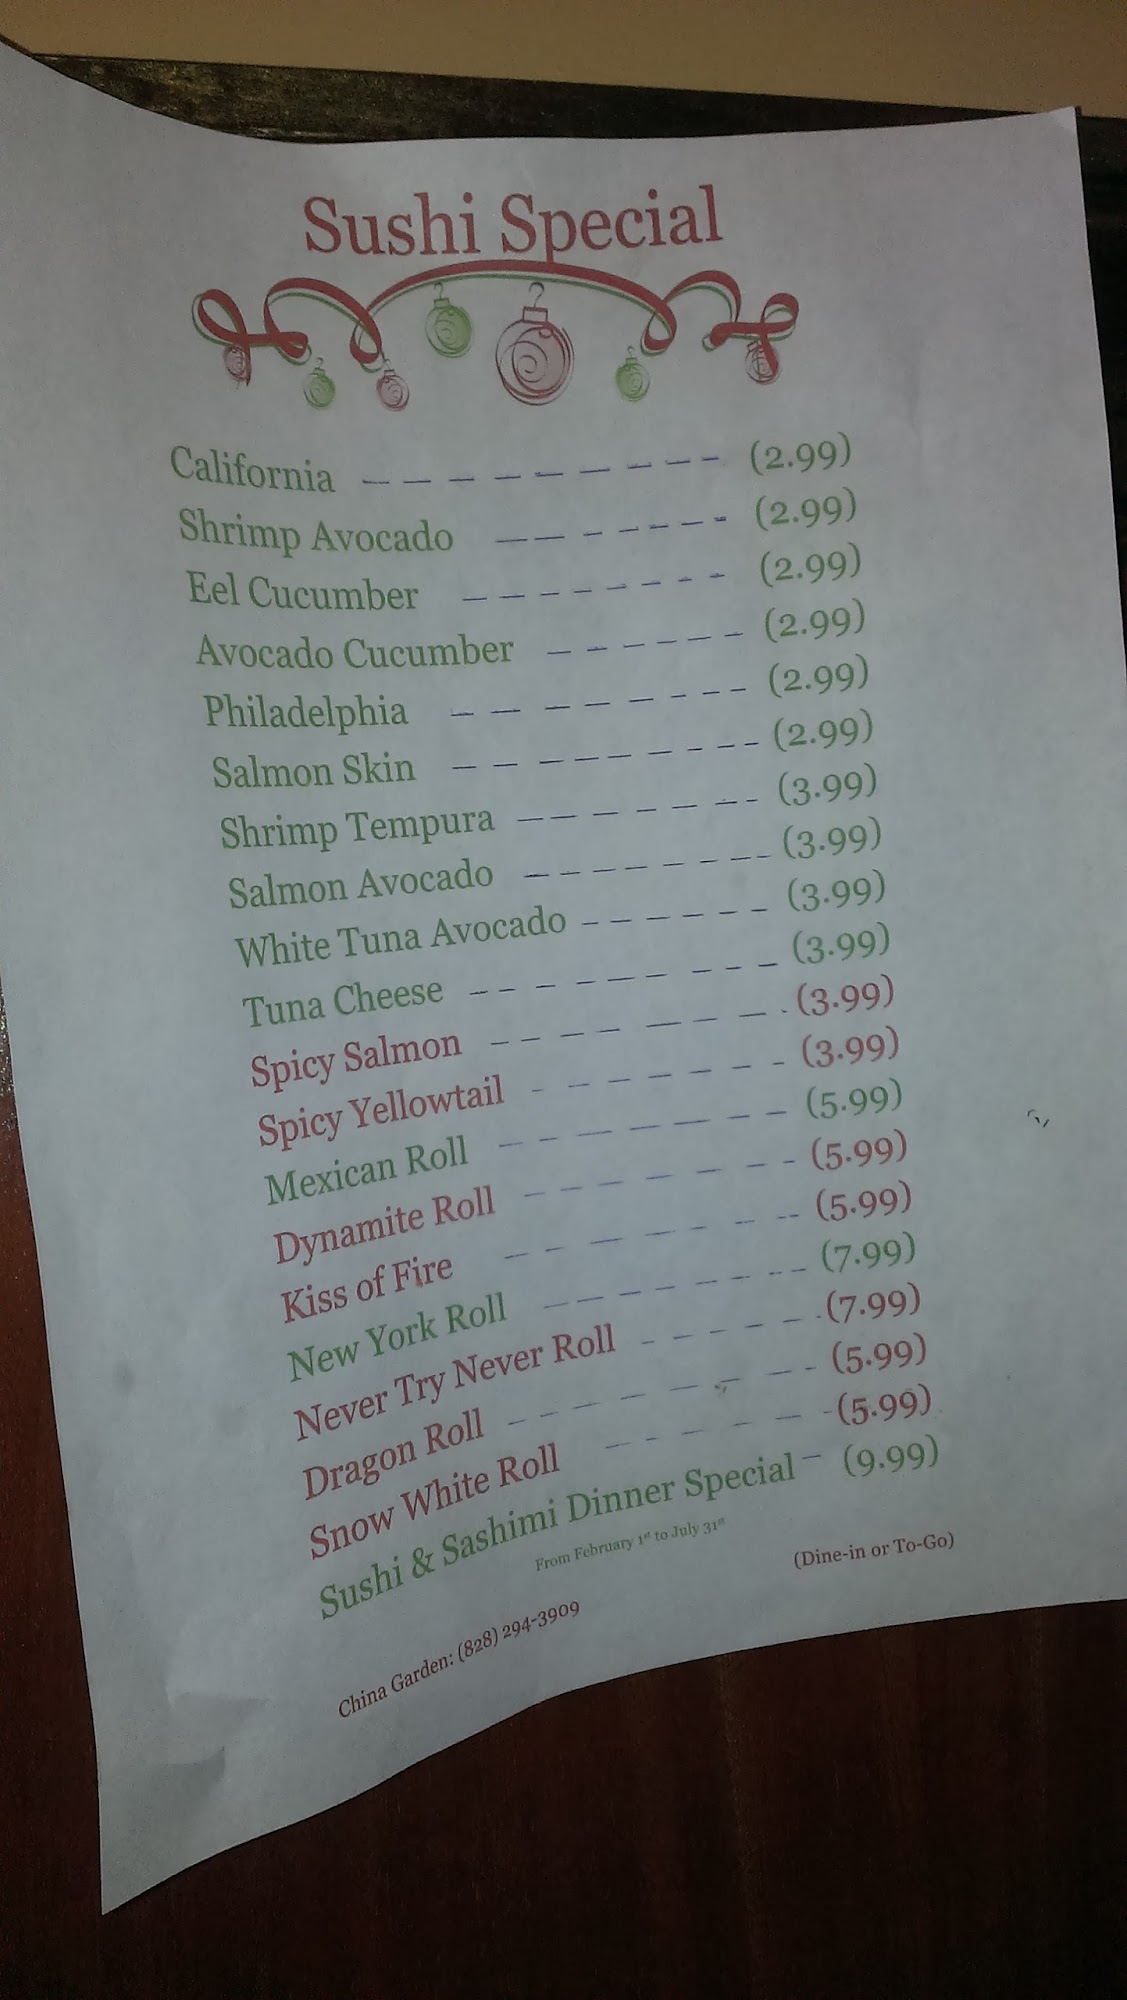 Sushi Special
California (2.99)
Shrimp Avocado (2.99)
Eel Cucumber (2.99)
Avocado Cucumber (2.99)
Philadelphia (2.99)
Salmon Skin (2.99)
Shrimp Tempura (3.99)
Salmon Avocado (3.99)
White Tuna Avocado (3.99)
Tuna Cheese (3.99)
Spicy Salmon (3.99)
Spicy Yellowtail (3.99)
Mexican Roll (5.99)
Dynamite Roll (5.99)
Kiss of Fire (5.99)
New York Roll (7.99)
Never Try Never Roll (7.99)
Dragon Roll (5.99)
Snow White Roll (5.99)
Sushi & Sashimi Dinner Special (9.99)
From February 1st to July 31st
(Dine-in or To-Go)
China Garden: (828) 294-3909